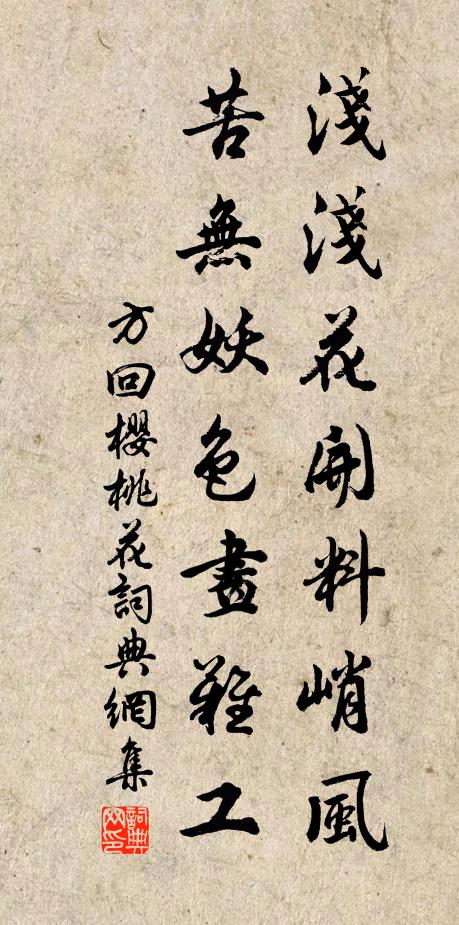 淺淺花開料峭風
苦無妖色畫難工
方回櫻桃花詞典網集
詞典网印